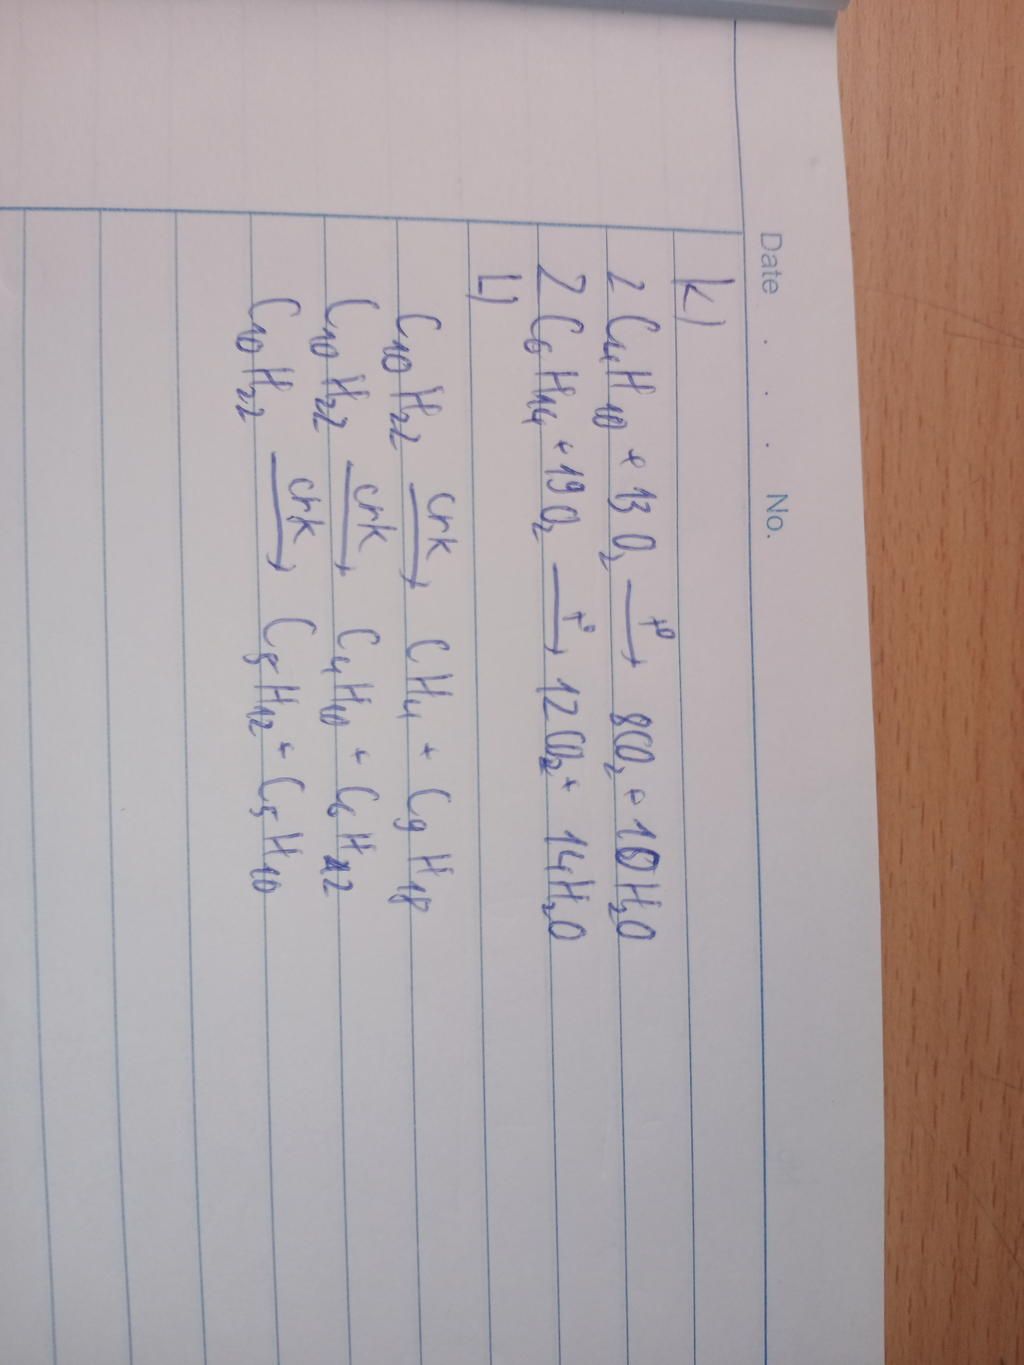 Date . . . No.
K)
2 C₄H₁₀ + 13 O₂ →(t°) 8CO₂ + 10H₂O
2 C₆H₁₄ + 19 O₂ →(t°) 12CO₂ + 14H₂O
L)
C₁₀H₂₂ →(crk) CH₄ + C₉H₁₈
C₁₀H₂₂ →(crk) C₄H₁₀ + C₆H₁₂
C₁₀H₂₂ →(crk) C₅H₁₂ + C₅H₁₀